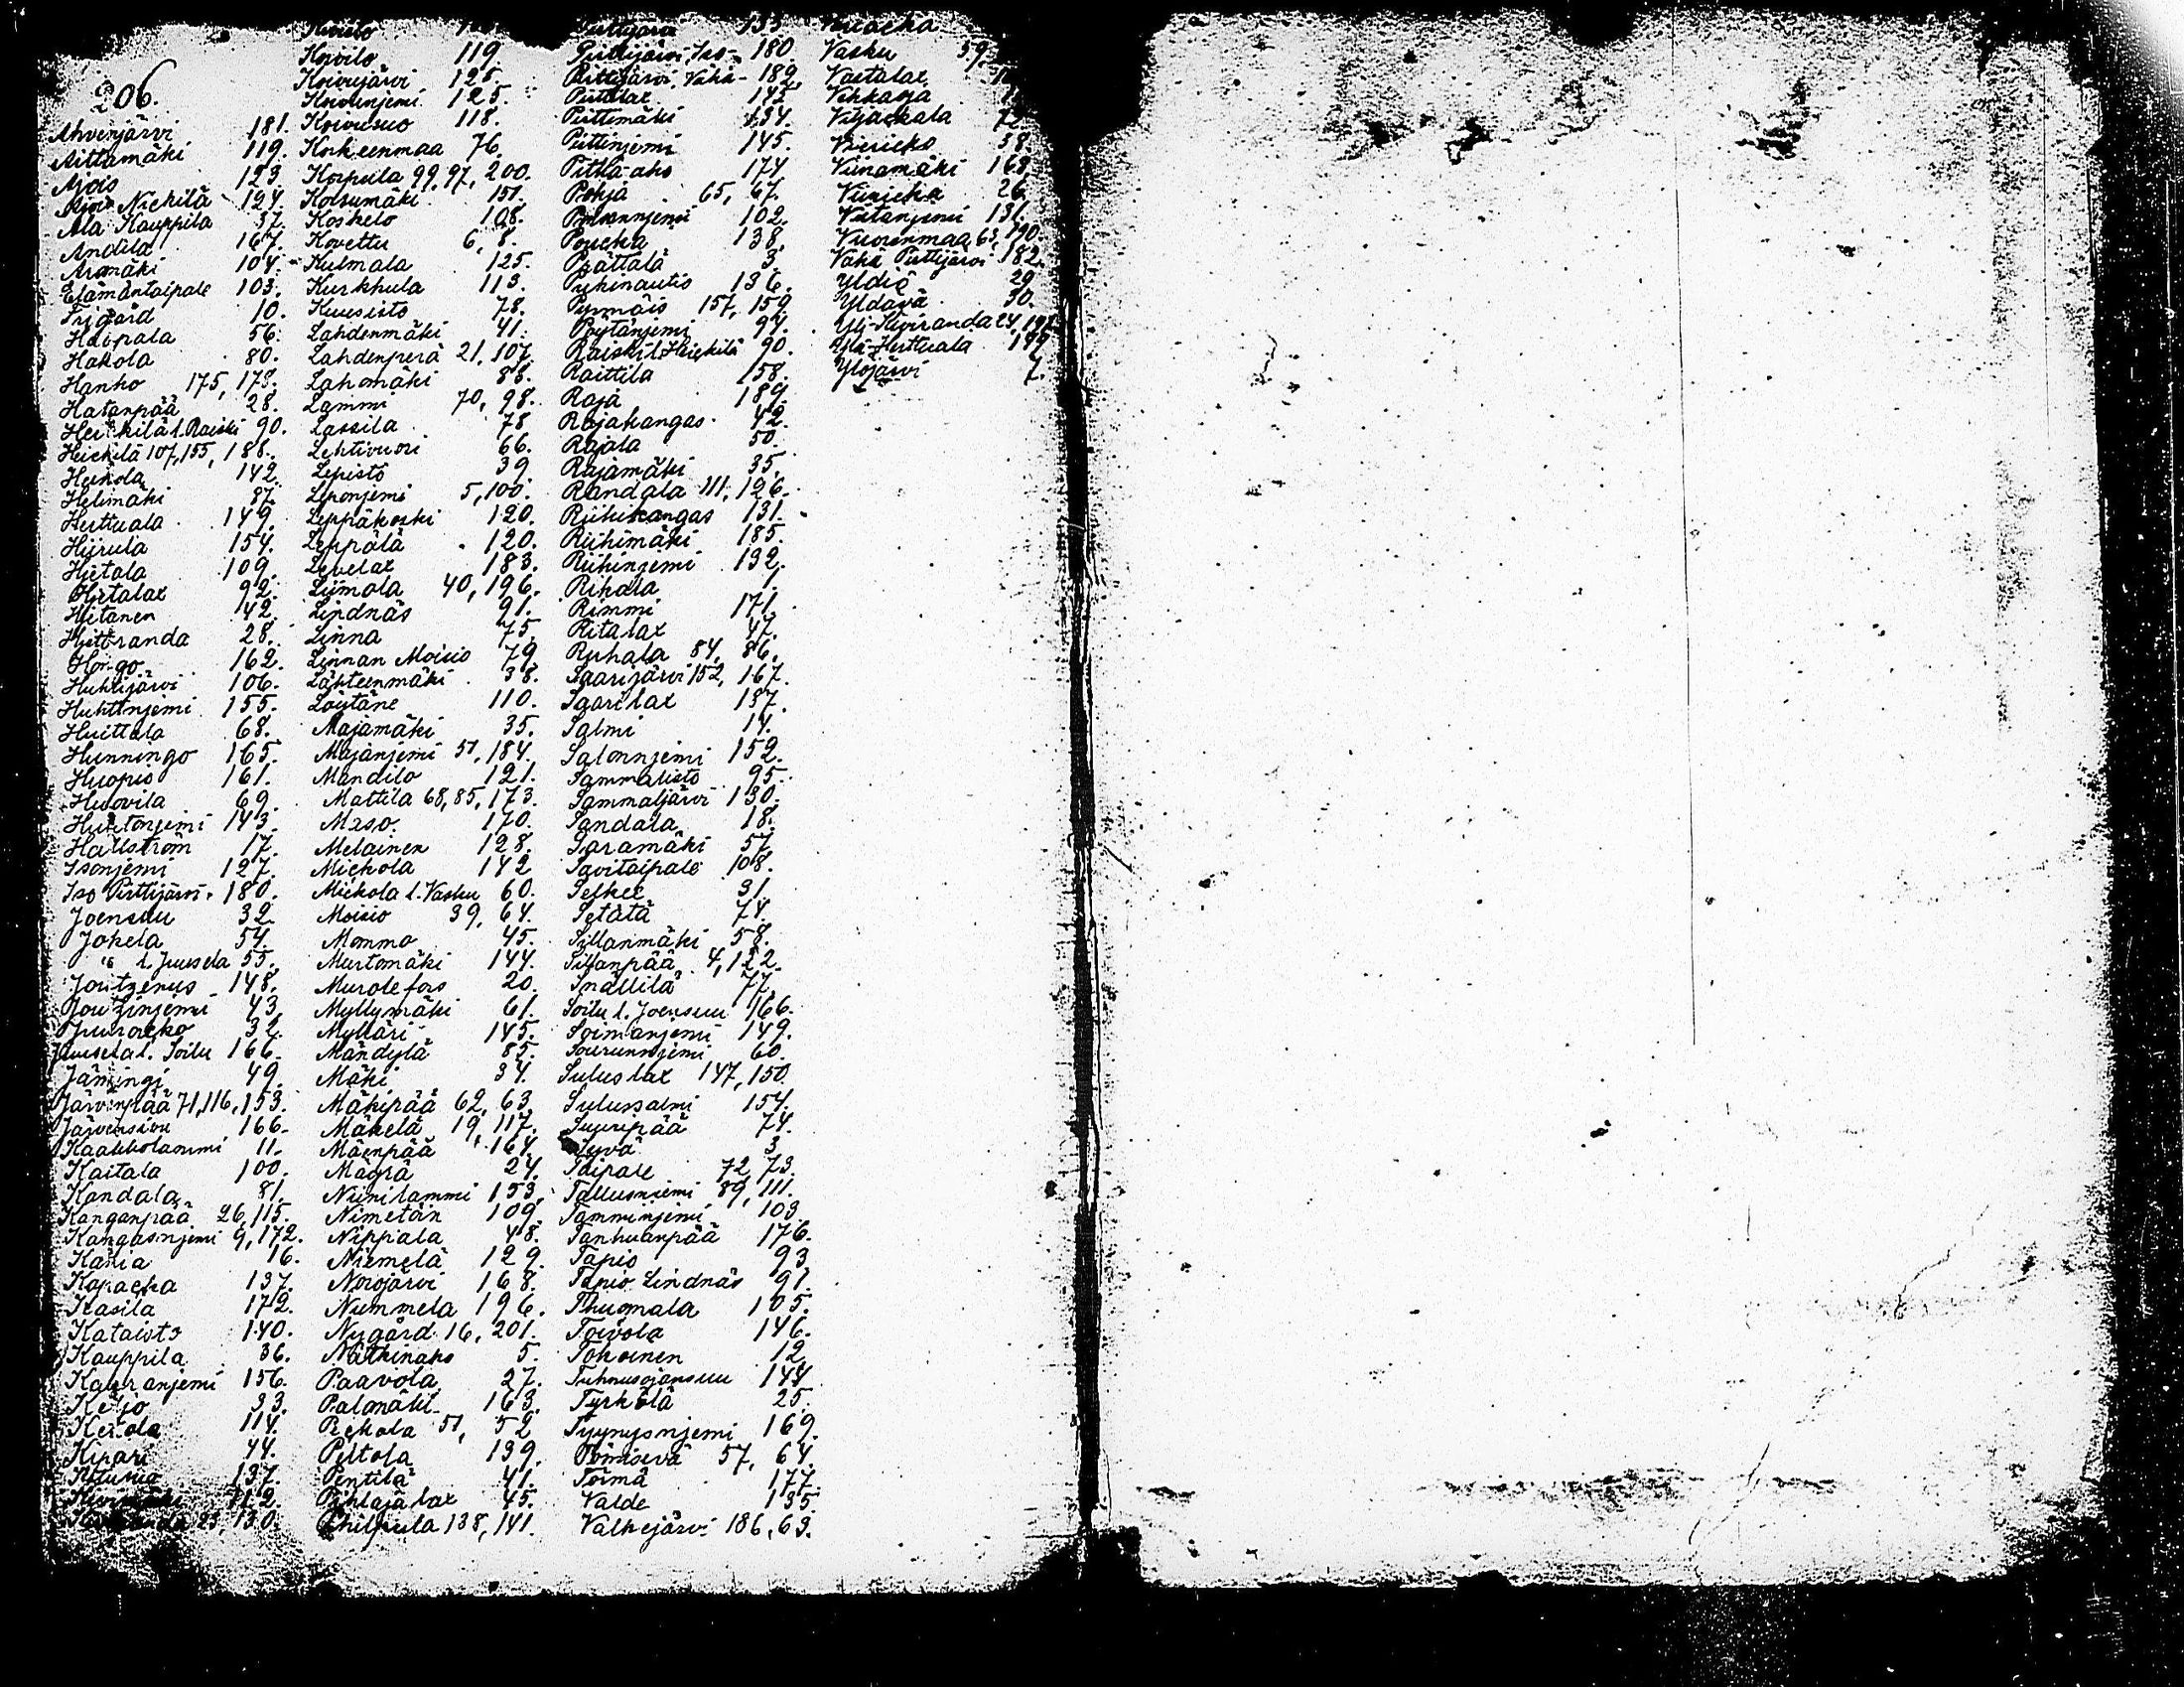 206.
Ahvenjärvi 181.
Aittamäki 119.
Ajois 123.
Ajois Niekilä 124.
Ala Kauppila 37.
Andila 167.
Aromäki 104.
Elämäntaipale 103.
Frigård 10.
Haapala 56.
Hakola 80.
Hanho 175, 178.
Hatanpää 28.
Heikkilä l. Raiski 90.
Heickilä 107, 155, 188.
Heikola 142.
Helimäki 87.
Herttuala 149.
Hiirula 154.
Hietala 109.
Hietalax 92.
Hietanen 42.
Hietoranda 28.
Hongo 162.
Huhtijärvi 106.
Huhtinjemi 155.
Huittala 68.
Hunningo 165.
Huopio 161.
Huovila 69.
Huttonjemi 143.
Hallström 17.
Isonjemi 127.
Iso Pirttijärvi 180.
Joensuu 32.
Jokela 54.
" l. Juusela 55.
Joutzenus 148.
Joutzinjemi 43.
32.
Juusela l. Soilu 166.
Jämingi 49.
Järvenpää 71, 116, 153.
Järvensivu 166.
Kaakkolammi 11.
Kaitala 100.
Kandala 81.
Kanganpää 26, 115.
Kangasnjemi 9, 172.
Karia 16.
Karacka 137.
Kasila 172.
Kataisto 140.
Kauppila 36.
Kauranjemi 156.
Keijo 33.
Kerola 114.
Kipari 44.
137.
112.
25, 130.
Koivisto
Koivilo 119.
Koivujärvi 125.
Koivunjemi 125.
Koivusuo 118.
Korkeenmaa 76.
Korpula 99, 97, 200.
Korsumäki 151.
Koskelo 108.
Kovettu 6, 8.
Kulmala 125.
Kurkhula 113.
Kuusisto 78.
Lahdenmäki 41.
Lahdenperä 21, 107.
Lahomäki 88.
Lammi 70, 98.
Lassila 78
Lehtivuori 66.
Lepistö 39
Leponjemi 5, 100.
Leppäkoski 120.
Leppälä 120.
Levelax 183.
Liimola 40, 196.
Lindnäs 91.
Linna 75.
Linnan Moisio 79.
Lähteenmäki 38.
Löytäne 110.
Majamäki 35.
Majanjemi 51, 184.
Mandilo 121.
Mattila 68, 85, 173.
Maso 170.
Melainen 128.
Mickola 142
Mickola l. Vasku 60.
Moisio 39, 64.
Mommo 45.
Murtomäki 144.
Murole fors 20.
Myllymäki 61.
Mylläri 145.
Mändylä 85.
Mäki 34.
Mäkipää 62, 63.
Mäkelä 19, 117.
Mäenpää 164.
Mägrä 24.
Niinilammi 153.
Nimetöin 109.
Nippala 48.
Niemelä 129.
Norojärvi 168.
Nummela 196.
Nygård 16, 201.
Nätkinaho 5.
Paavola 27.
Palomäki 163.
Pekola 51, 52
Peltola 139.
Pentilä 41.
Pihlajalax 45.
Philpula 138, 141.
Pirttijärvi 133
Pirttijärvi, Iso- 180
Pirttijärvi, Vähä- 182.
Pirttilax 142
Pirttimäki 134.
Pirttinjemi 145.
Pitkä-aho 174
Pohja 65, 67.
102.
Poucka 138.
Prättälä 3.
Pyhinautio 136.
Pyrmäis 157, 159
Pöytänjemi 94.
Raiski l. Heickilä 90.
Raittila 158.
Raja 189.
Rajakangas 42.
Rajala 50.
Rajamäki 35.
Randala 111, 126.
Riihikangas 131.
Riihimäki 185.
Riihinjemi 132.
Rihala 1.
Rimmi 171.
Ritalax 47.
Ruhala 84, 86.
Saarijärvi 152, 167.
Saarilax 137.
Salmi 14.
Salonnjemi 152.
Sammalisto 95.
Sammaljärvi 130.
Sandala 18.
Saramäki 57.
Savitaipale 108.
Selkee 31.
Setälä 74.
Sillanmäki 58.
Sillanpää 4, 122.
Snällilä 77.
Soilu l. Joensuu 166.
Soimanjemi 149.
Sourunnjemi 60.
Suluslax 147, 150.
Sulussalmi 154.
Suuripää 74.
Syvä 3.
Taipale 72, 73.
Tallusniemi 89, 111.
Tamminjemi 103.
Tanhuanpää 176.
Tapio 93
Tapio Lindnäs 91.
Thuomala 105.
Toivola 146.
Tokoinen 12
Tuhnusojansuu 144.
Tyrkölä 25.
Tyynysnjemi 169.
57, 64.
Törmä 177.
Valde 135.
Valkejärvi 186, 63.
Vasku 59,
Vastalax
Vehkaoja
Viljackala 72.
Viericko 38.
Viinamäki 168.
Viiricka 26.
Virtanjemi 131.
Vuorenmaa 63, 190.
Vähä Pirttijärvi 182.
Yldiä 29.
Yldävä 30.
Yli-Kiviranda 24, 192.
Yli-Herttuala 199
Ylöjärvi 7.